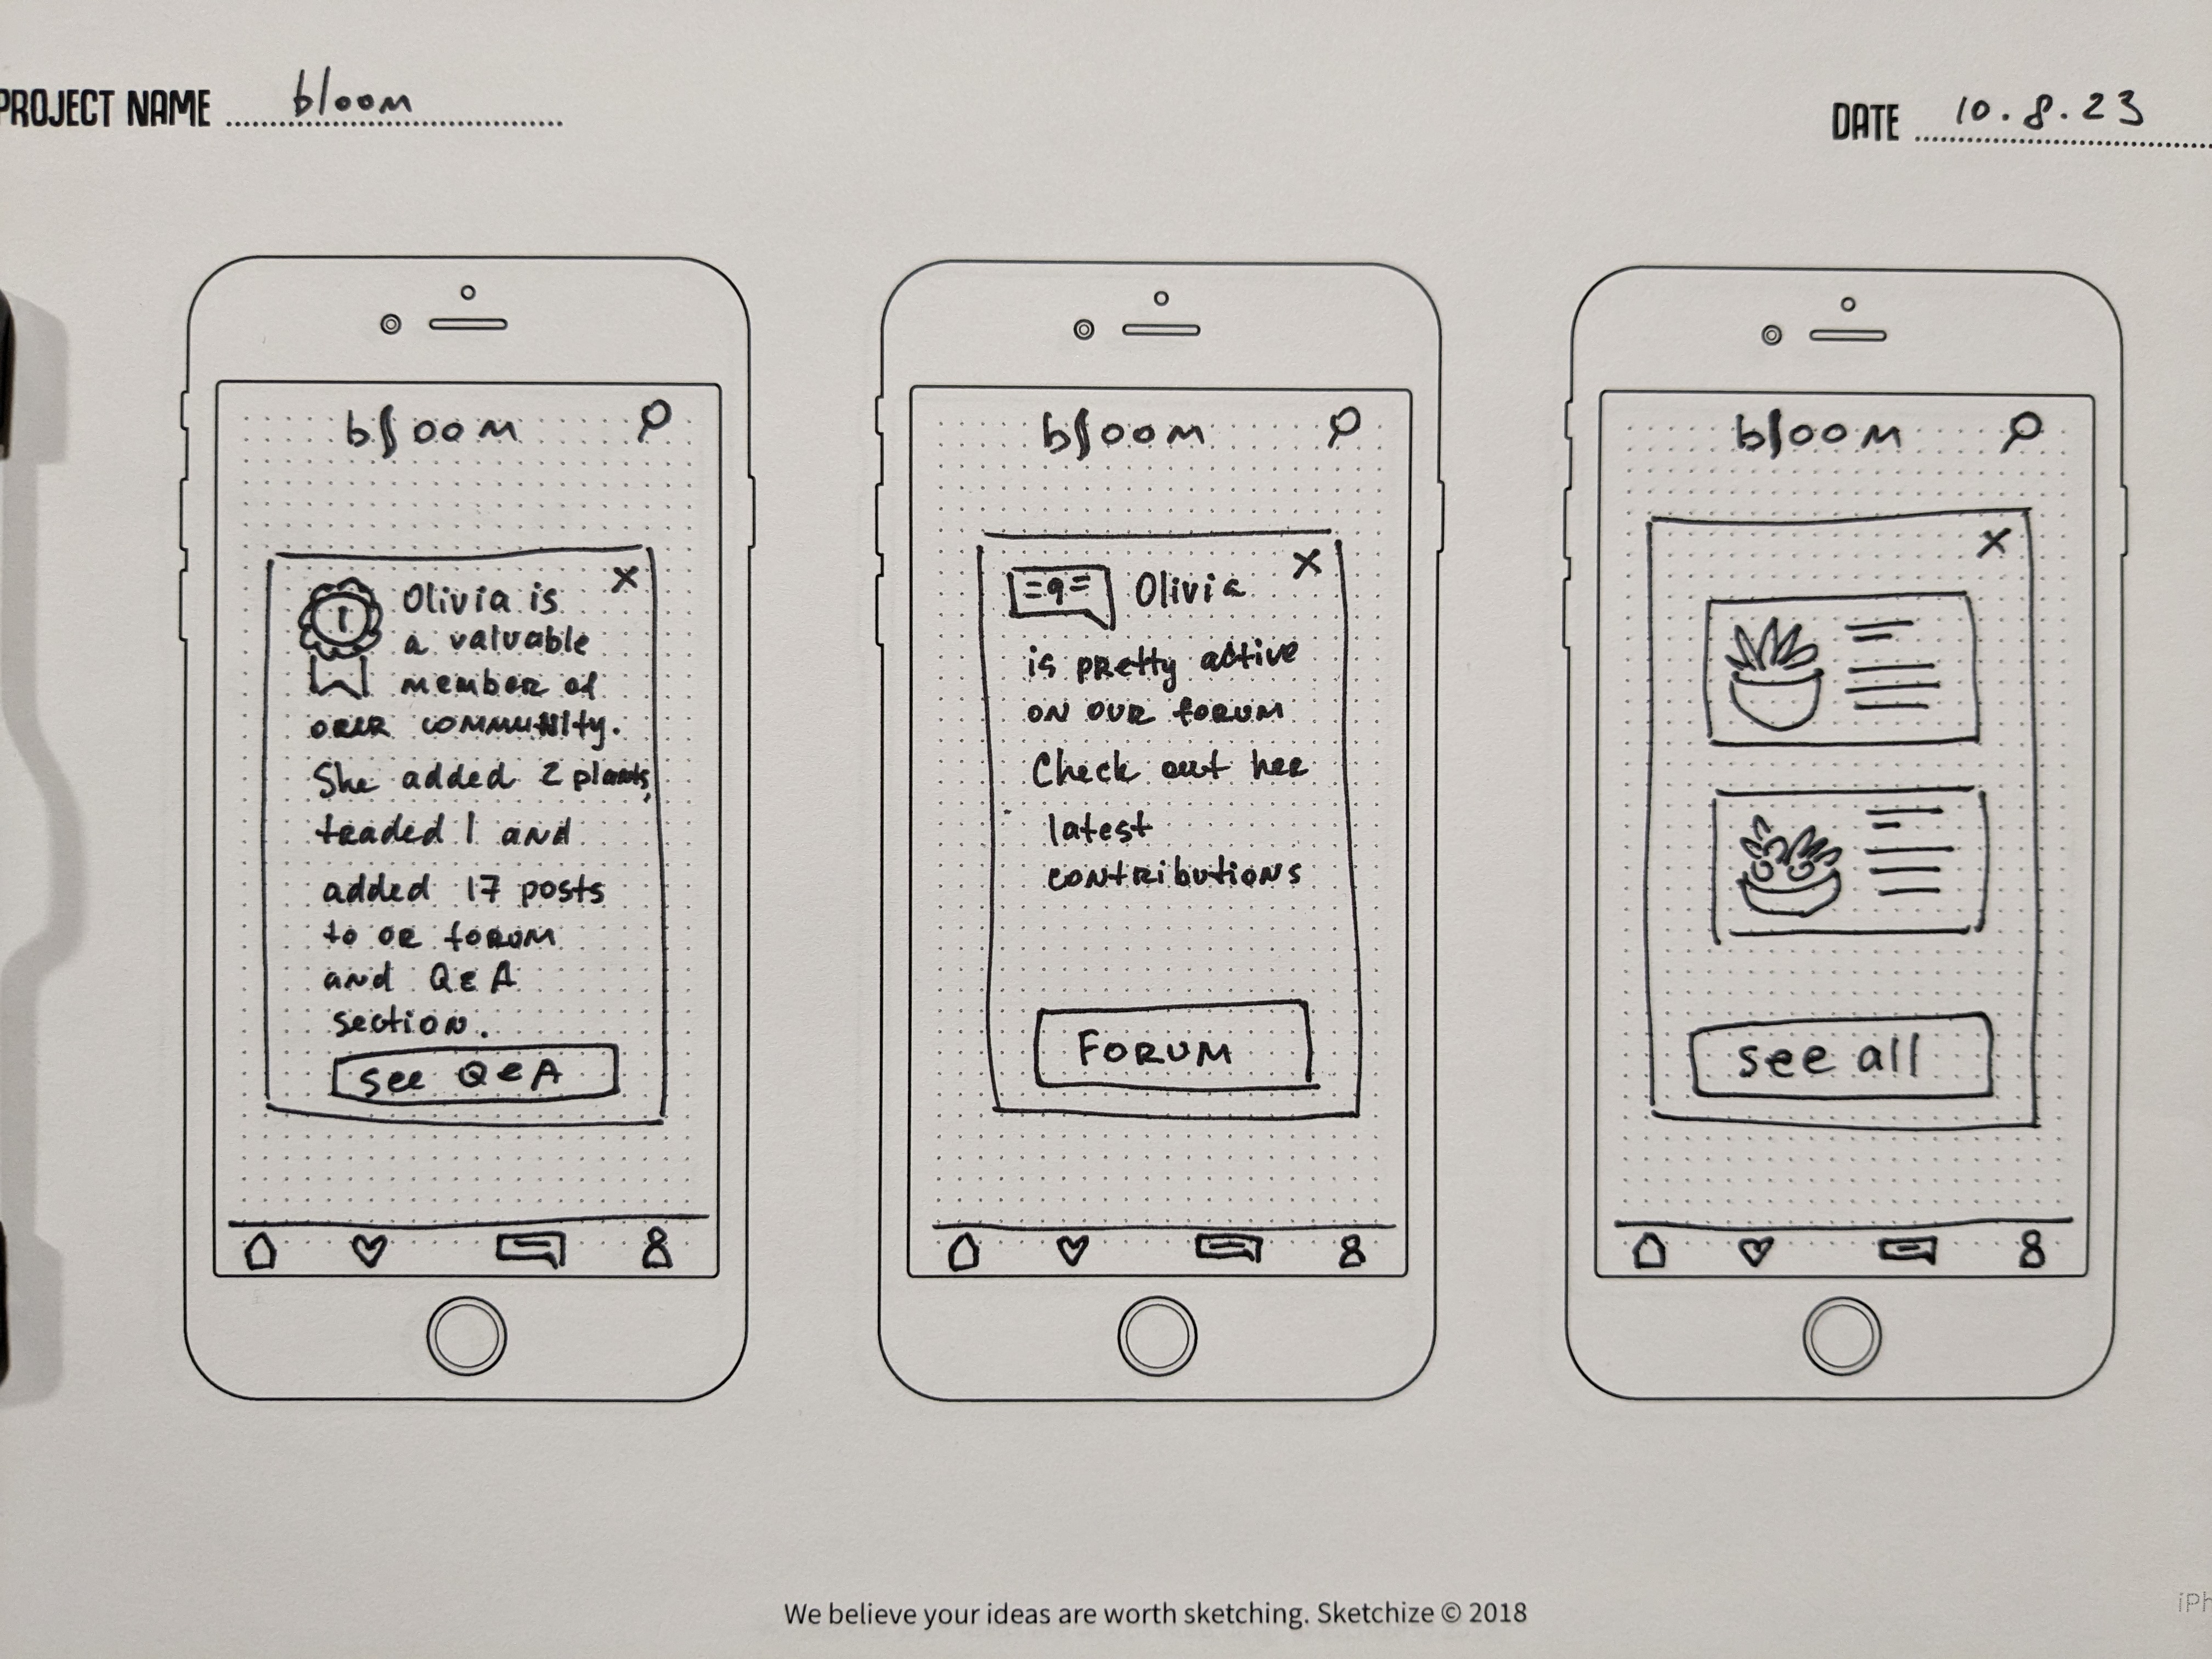 PROJECT NAME bloom
DATE 10.8.23
bloom
Olivia is
a valuable
member of
our community.
She added 2 plants,
traded 1 and
added 17 posts
to or forum
and Q&A
section.
see Q&A
bloom
Olivia
is pretty active
on our forum
Check out her
latest
contributions
FORUM
bloom
see all
We believe your ideas are worth sketching. Sketchize © 2018